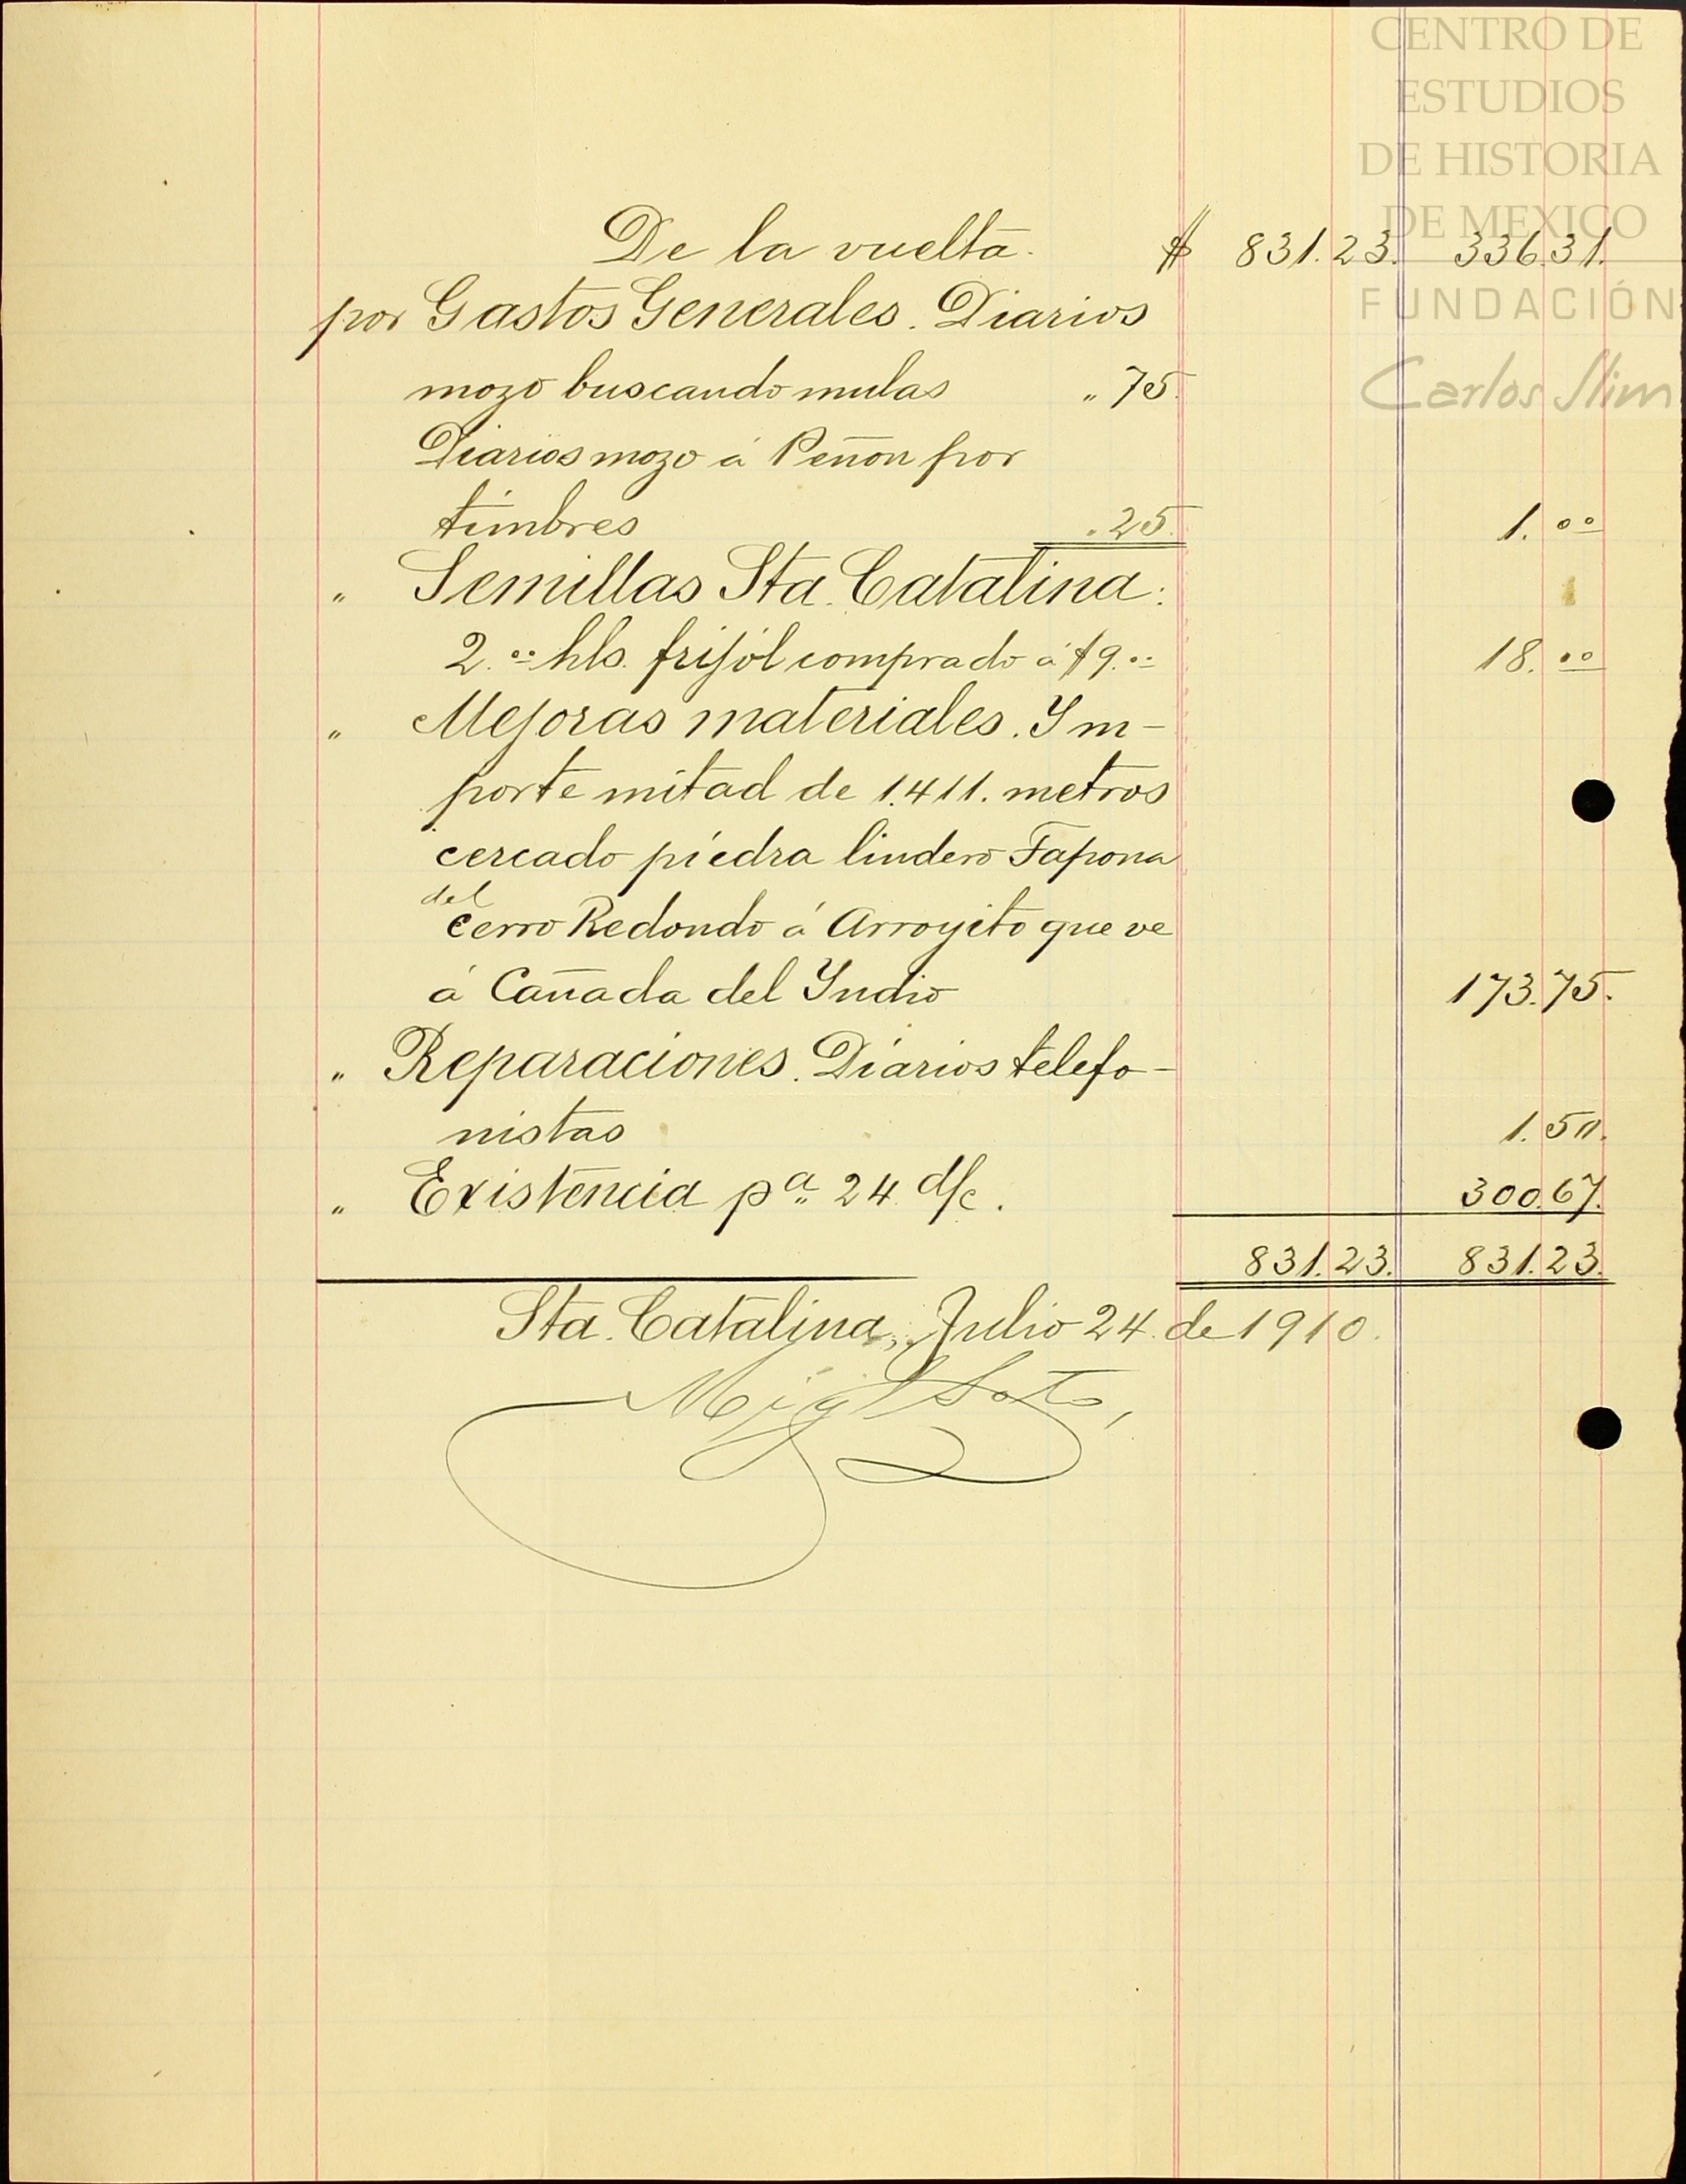 CENTRO DE
ESTUDIOS
DE HISTORIA
DE MEXICO
FUNDACIÓN
Carlos Slim
De la vuelta. $ 831.23. 336.31.
por Gastos Generales. Diarios
mozo buscando mulas „ 75.
Diarios mozo á Peñon por
timbres „ 25. 1.00
„ Semillas Sta. Catalina:
2.00 hls. frijol comprado á $9.00 18.00
„ Mejoras materiales. Ym-
porte mitad de 1.411. metros
cercado piedra lindero Tapona
del
cerro Redondo á Arroyito que ve
á Cañada del Yndio 173.75.
„ Reparaciones. Diarios telefo-
nistas 1.50.
„ Existencia pa. 24 d/c. 300.67.
831.23. 831.23.
Sta. Catalina, Julio 24. de 1910.
Migl Soto,